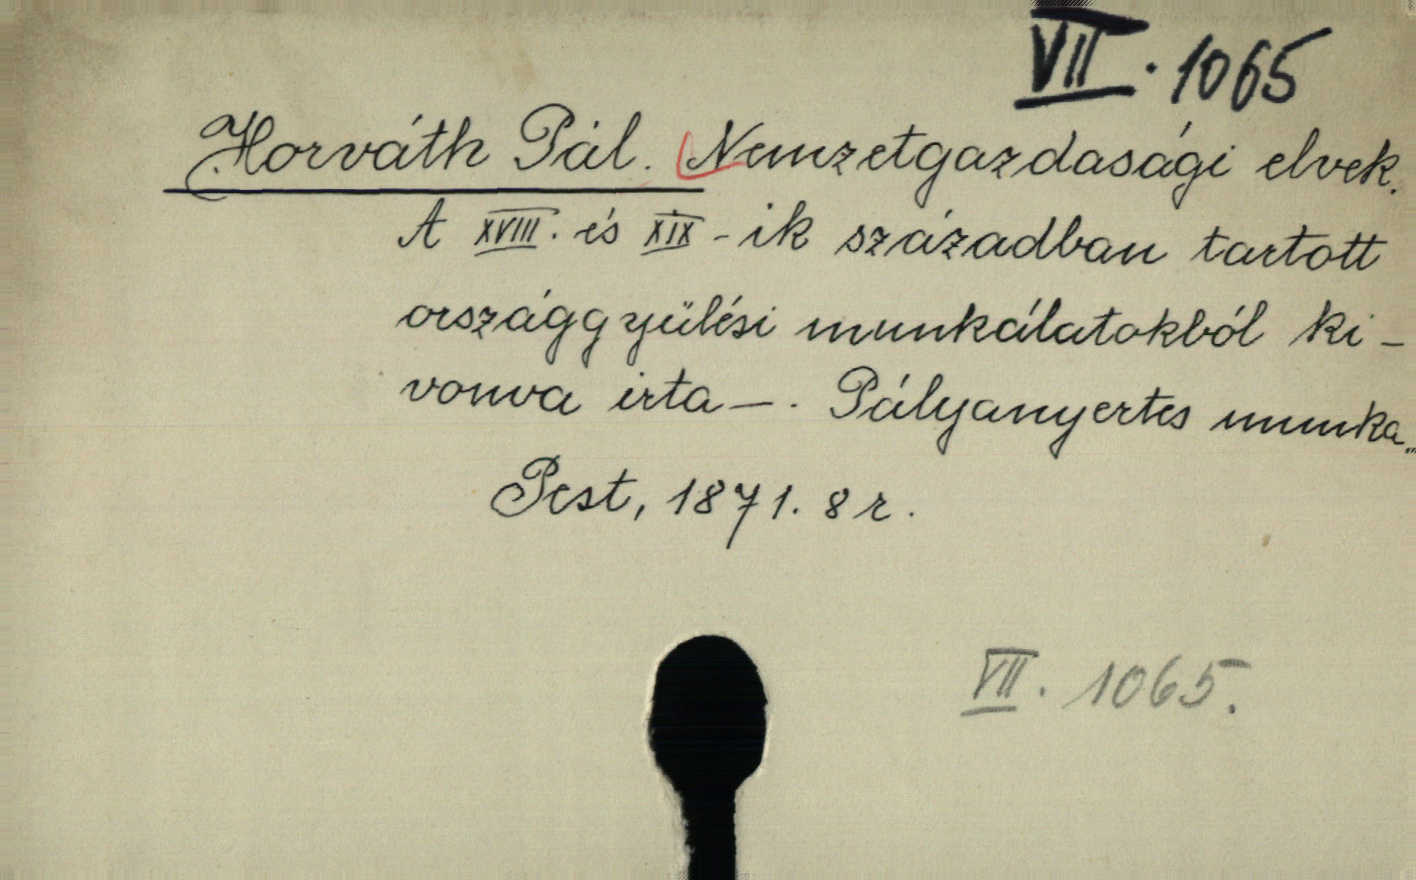 VII. 1065
Horváth Pál. Nemzetgazdasági elvek.
A XVIII. és XIX-ik században tartott
országgyülési munkálatokból ki-
vonva irta —. Pályanyertes munka.
Pest, 1871. 8 r.
VII. 1065.